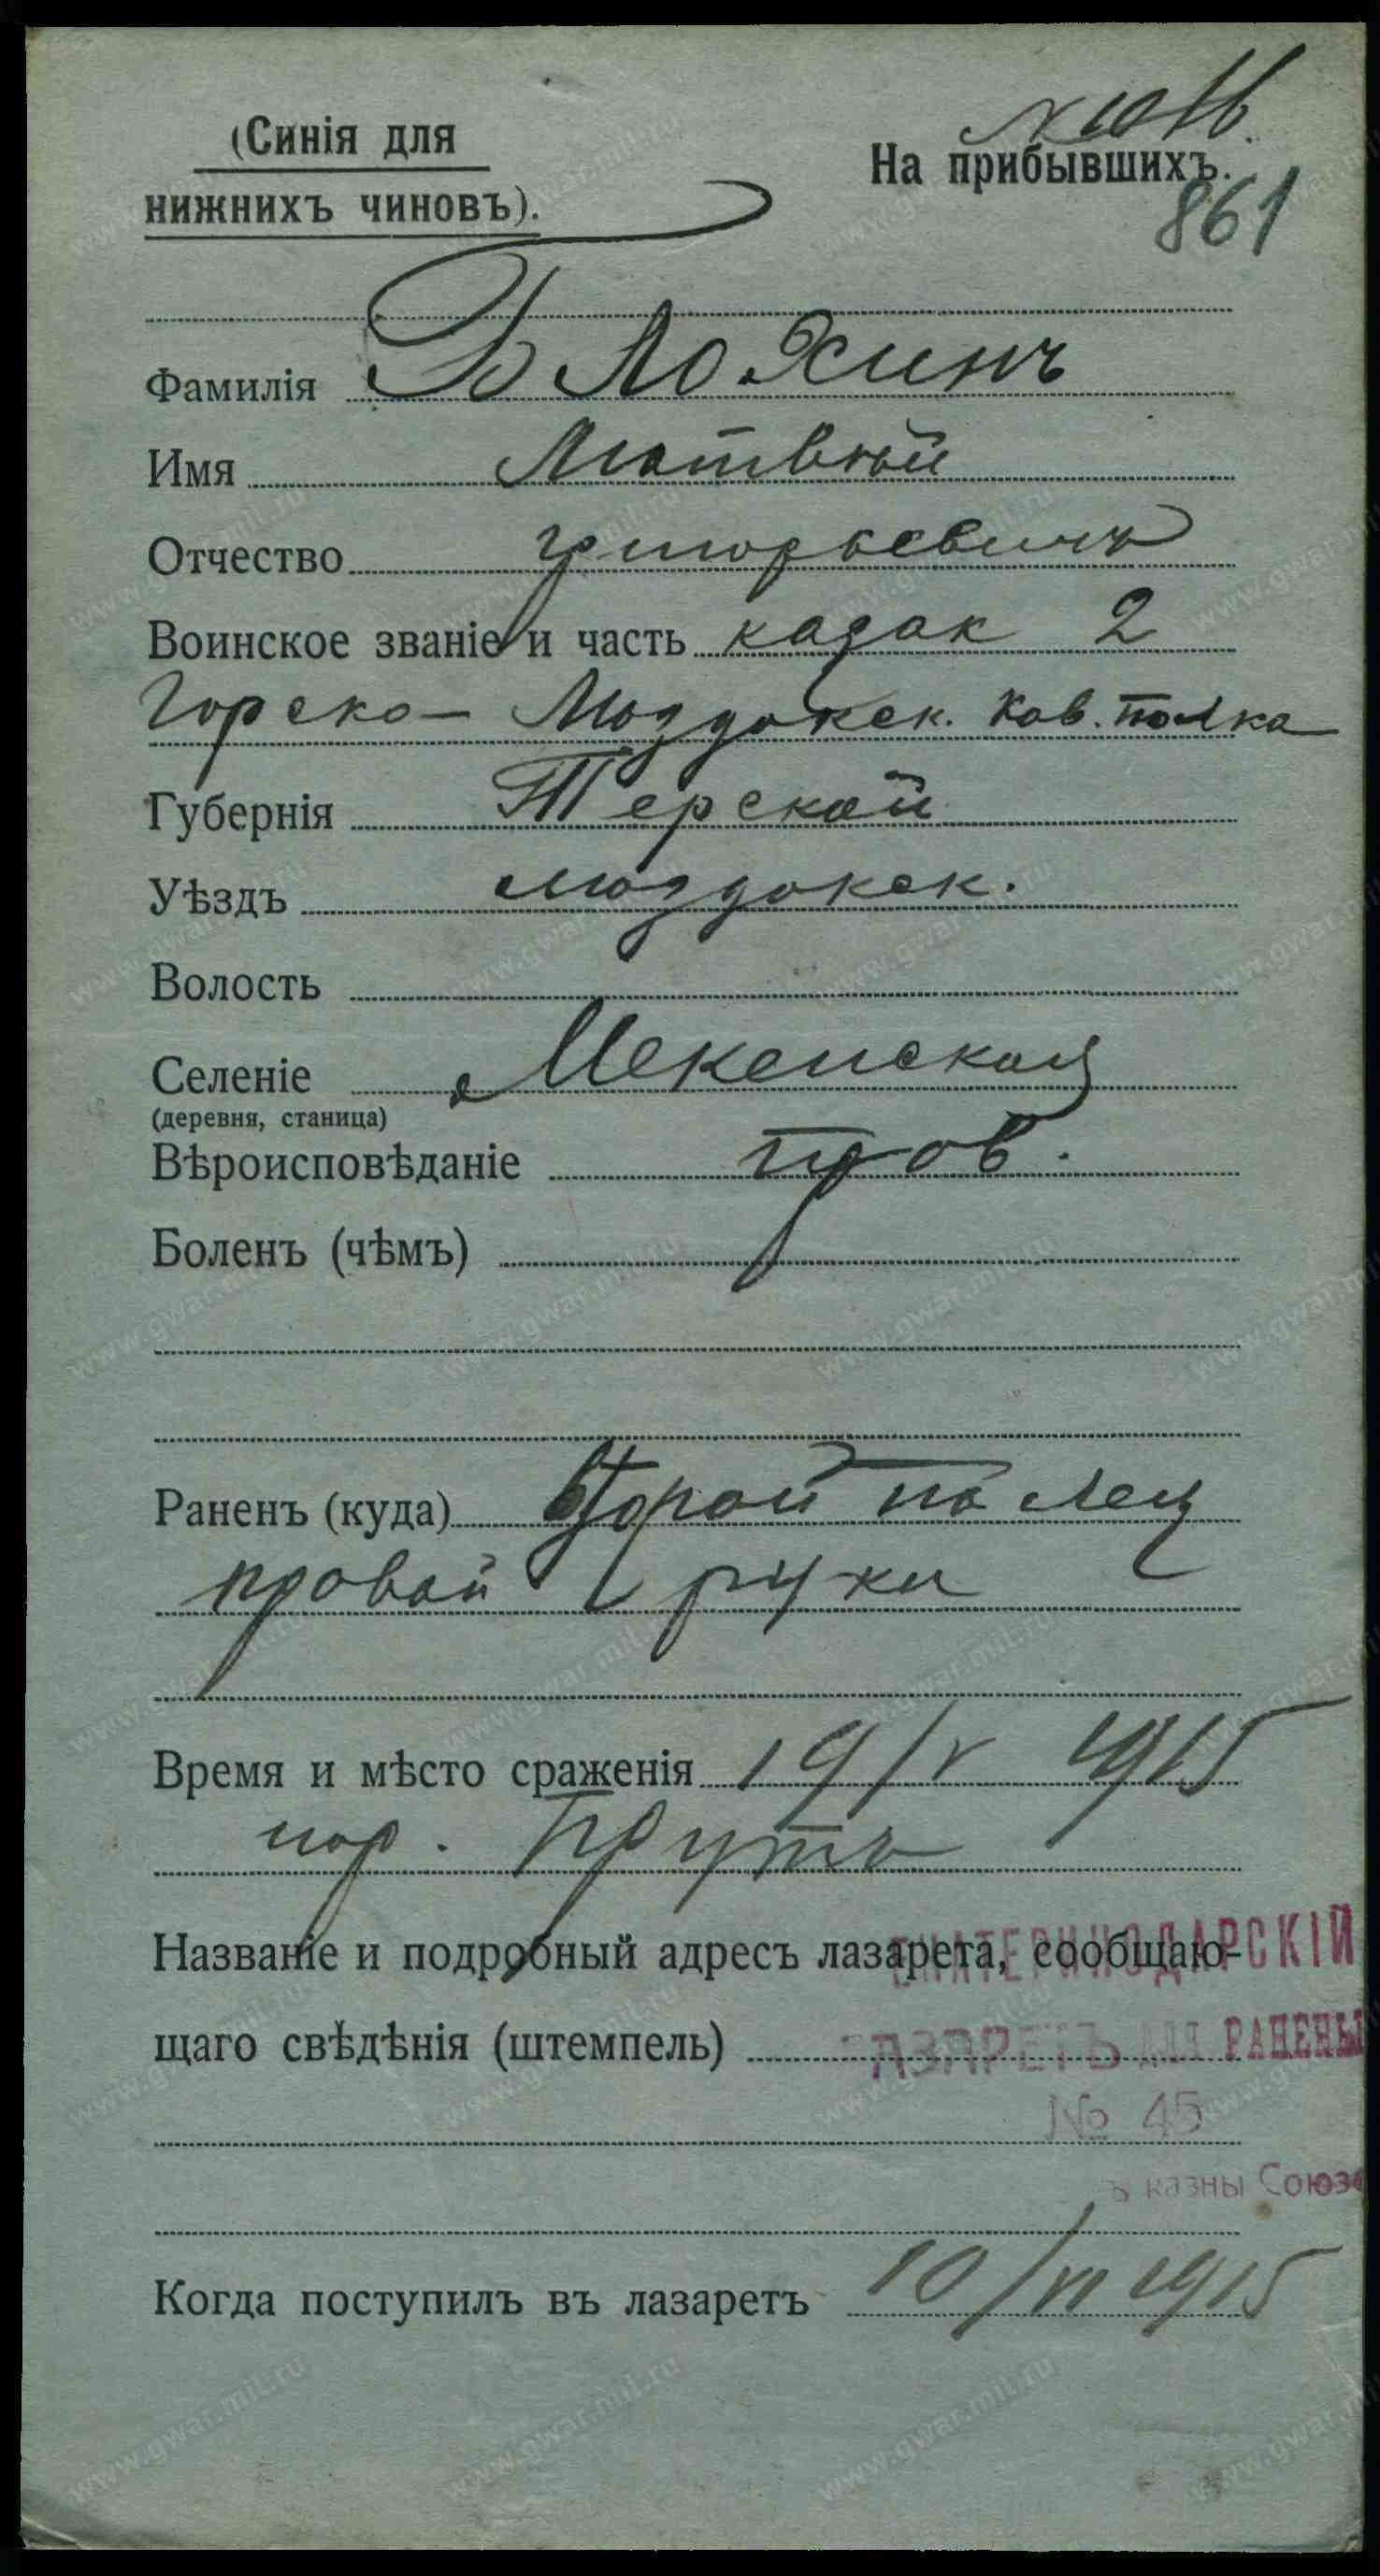 (Синія для
нижнихъ чиновъ).
На прибывшихъ.
861
Фамилія Блохинъ
Имя Матвѣй
Отчество Григорьевичъ
Воинское званіе и часть казак 2
Горско-Моздокск. Кав. полка
Губернія Терской
Уѣздъ моздокск.
Волость
Селеніе Мекенская
(деревня, станица)
Вѣроисповѣданіе прав.
Боленъ (чѣмъ)
Раненъ (куда) второй палец
правой руки
Время и мѣсто сраженія 19/V 1915
на р. Прутъ
Названіе и подробный адресъ лазарета, сообщаю-
ЕКАТЕРИНОДАРСКІЙ
щаго свѣдѣнія (штемпель)
ЛАЗАРЕТЪ ДЛЯ РАНЕНЫ
№ 45
казны Союза
Когда поступилъ въ лазаретъ 10/VI 1915